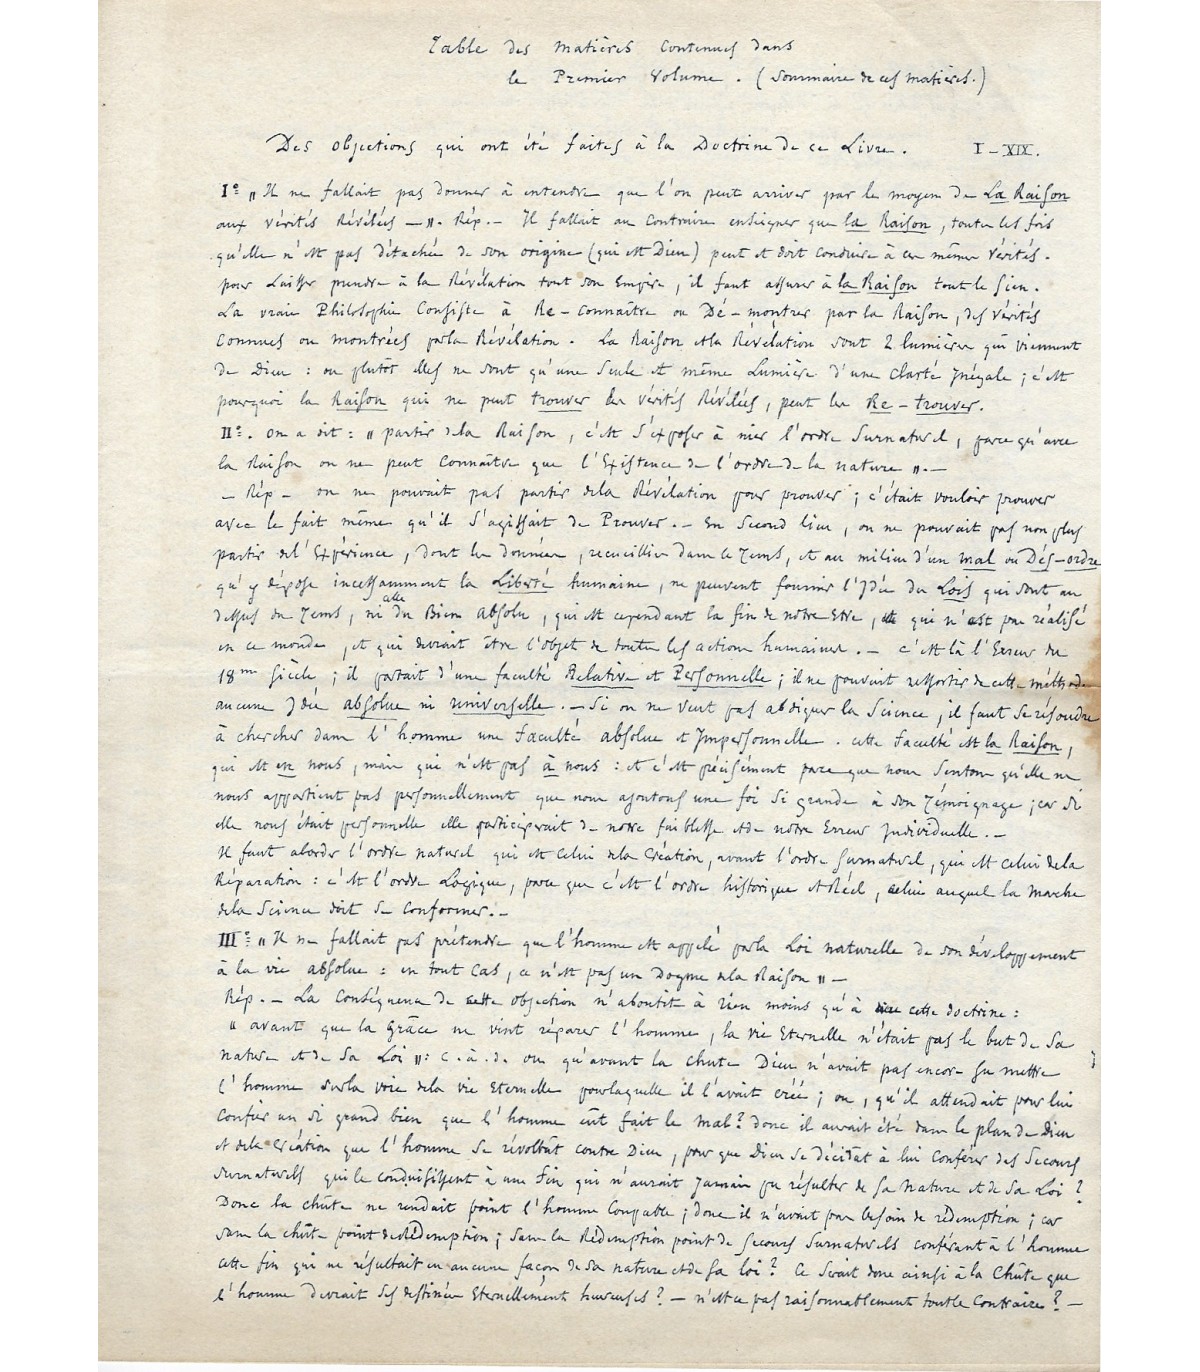 Table des matières contenues dans
le Premier Volume. (Sommaire de ces matières.)
Des objections qui ont été faites à la Doctrine de ce Livre. I-XIX.
Iº " Il ne fallait pas donner à entendre que l'on peut arriver par le moyen de La Raison
aux vérités Révélées — ". Rép. — Il fallait au contraire enseigner que la Raison, toutes les fois
qu'elle n'est pas détachée de son origine (qui est Dieu) peut et doit conduire à ces mêmes vérités.
pour Laisser prendre à la Révélation tout son Empire, il faut assurer à la Raison tout le sien.
La vraie Philosophie Consiste à Re-connaître ou Dé-montrer par la Raison, des vérités
connues ou montrées par la Révélation. La Raison et la Révélation sont 2 lumières qui viennent
de Dieu : ou plutôt elles ne sont qu'une seule et même Lumière d'une clarté Inégale ; c'est
pourquoi la Raison qui ne peut trouver les vérités Révélées, peut les Re-trouver.
IIº. on a dit : " partir de la Raison, c'est s'exposer à nier l'ordre Surnaturel, parce qu'avec
la Raison on ne peut connaître que l'Existence de l'ordre de la nature ". —
— Rép — on ne pouvait pas partir de la Révélation pour prouver ; c'était vouloir prouver
avec le fait même qu'il s'agissait de Prouver. — En second lieu, on ne pouvait pas non plus
partir de l'Expérience, dont les données, recueillies dans le Tems, et au milieu d'un mal ou Dés-ordre
qu'y dépose incessamment la Liberté humaine, ne peuvent fournir l'Idée des Lois qui sont au
dessus du Tems, ni celle du Bien absolu, qui est cependant la fin de notre Etre, qui n'est pas réalisé
en ce monde, et qui devrait être l'objet de toutes les actions humaines. — c'est là l'Erreur du
18me siècle ; il partait d'une faculté Relative et Personnelle ; il ne pouvait ressortir de cette méthode
aucune Idée absolue ni universelle. — Si on ne veut pas abdiquer la Science, il faut se résoudre
à chercher dans l'homme une faculté absolue et Impersonnelle. cette faculté est la Raison,
qui est en nous, mais qui n'est pas à nous : et c'est précisément parce que nous sentons qu'elle ne
nous appartient pas personnellement que nous ajoutons une foi si grande à son Témoignage ; car si
elle nous était personnelle elle participerait de notre faiblesse et de notre Erreur Individuelle. —
Il faut aborder l'ordre naturel qui est celui de la création, avant l'ordre surnaturel, qui est celui de la
Réparation : c'est l'ordre Logique, parce que c'est l'ordre historique et Réel, celui auquel la marche
de la Science doit se conformer. —
IIIº " Il ne fallait pas prétendre que l'homme est appelé par la Loi naturelle de son développement
à la vie absolue : en tout cas, ce n'est pas un Dogme de la Raison " —
Rép. — La conséquence de cette objection n'aboutit à rien moins qu'à cette doctrine :
" avant que la Grâce ne vint réparer l'homme, la vie Eternelle n'était pas le but de sa
nature et de sa Loi " : c. à. d. ou qu'avant la chute Dieu n'avait pas encore su mettre
l'homme sur la voie de la vie Eternelle pour laquelle il l'avait créé ; ou, qu'il attendait pour lui
confier un si grand bien que l'homme eût fait le mal ? donc il aurait été dans le plan de Dieu
et de la création que l'homme se révoltât contre Dieu, pour que Dieu se décidât à lui conférer des Secours
surnaturels qui le conduisissent à une fin qui n'aurait jamais pu résulter de sa nature et de sa Loi ?
Donc la chûte ne rendait point l'homme Coupable ; donc il n'avait pas besoin de rédemption ; car
sans la chûte point de Rédemption ; sans la Rédemption point de secours surnaturels conférant à l'homme
cette fin qui ne résultait en aucune façon de sa nature et de sa loi ? Ce serait donc ainsi à la Chûte que
l'homme devrait ses destinées Eternellement heureuses ? — n'est ce pas raisonnablement tout le contraire ? —